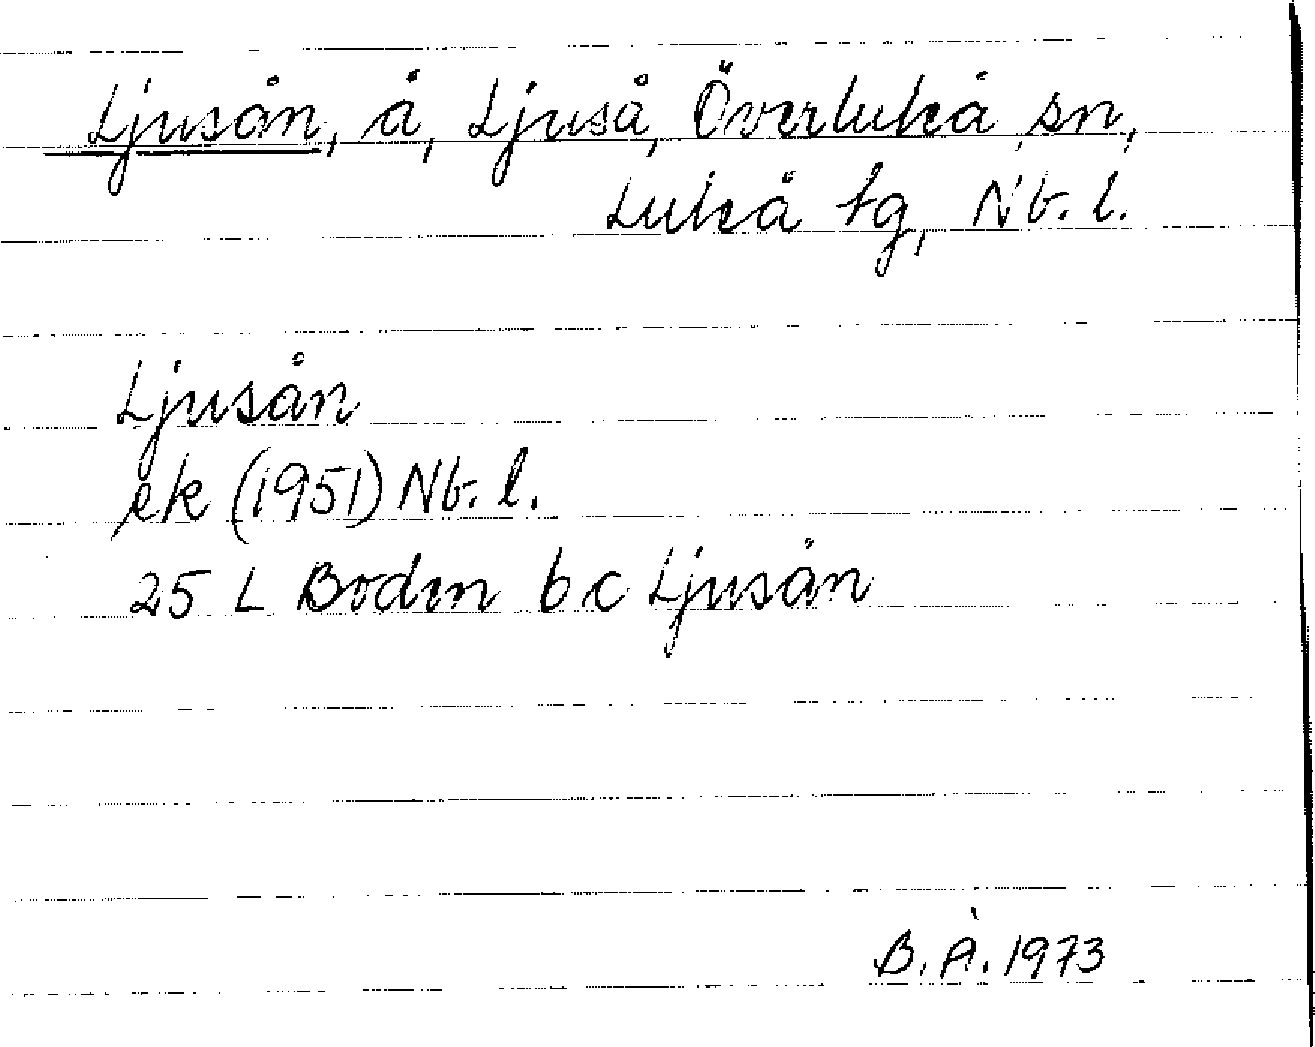 Ljusån, å, Ljuså, Överluleå sn,
Luleå tg, Nb. l.
Ljusån
ek (1951) Nb. l.
25 L Boden b c Ljusån
B. Å. 1973